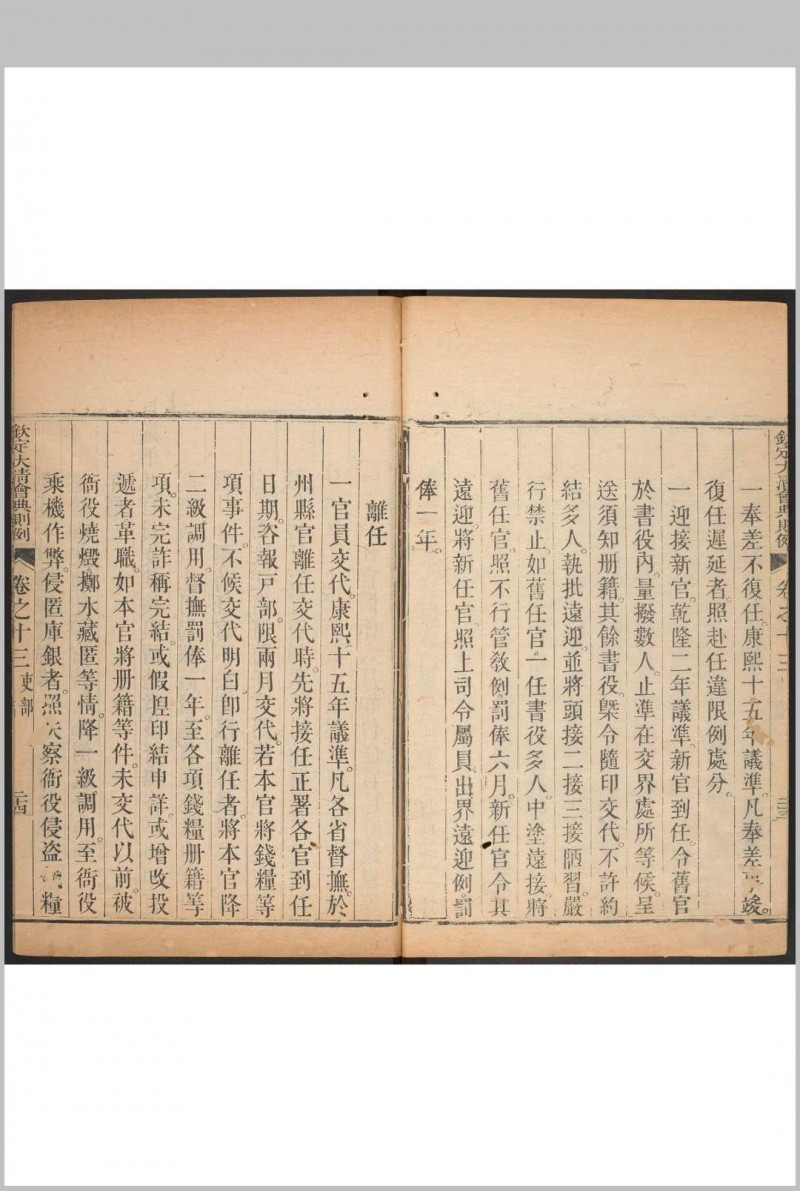 欽定大清會典則例 卷之十三
一奉差不復任。康熙十五年議準。凡奉差事竣。
復任遲延者。照赴任違限例處分。
一迎接新官。乾隆二年議準。新官到任。令舊官
於書役內。量撥數人。止準在交界處所等候。呈
送須知册籍。其餘書役。槩令隨印交代。不許約
結多人。執批遠迎。並將頭接二接三接陋習。嚴
行禁止。如舊任官。一任書役多人。中塗遠接。將
舊任官。照不行管敎例。罰俸六月。新任官令其
遠迎。將新任官。照上司令屬員出界遠迎例。罰
俸一年。
離任
一官員交代。康熙十五年議準。凡各省督撫。於
州縣官離任交代時。先將接任正署各官到任
日期。咨報戸部。限兩月交代。若本官將錢糧等
項事件。不候交代明白。卽行離任者。將本官降
二級調用。督撫罰俸一年。至各項錢糧册籍等
項。未完詐稱完結。或假揑印結申詳。或增改投
遞者革職。如本官將册籍等件。未交代以前。被
衙役燒燬擲水藏匿等情。降一級調用。至衙役
乘機作弊。侵匿庫銀者。照失察衙役侵盜 糧
欽定大清會典則例 卷之十三 吏部 二十四